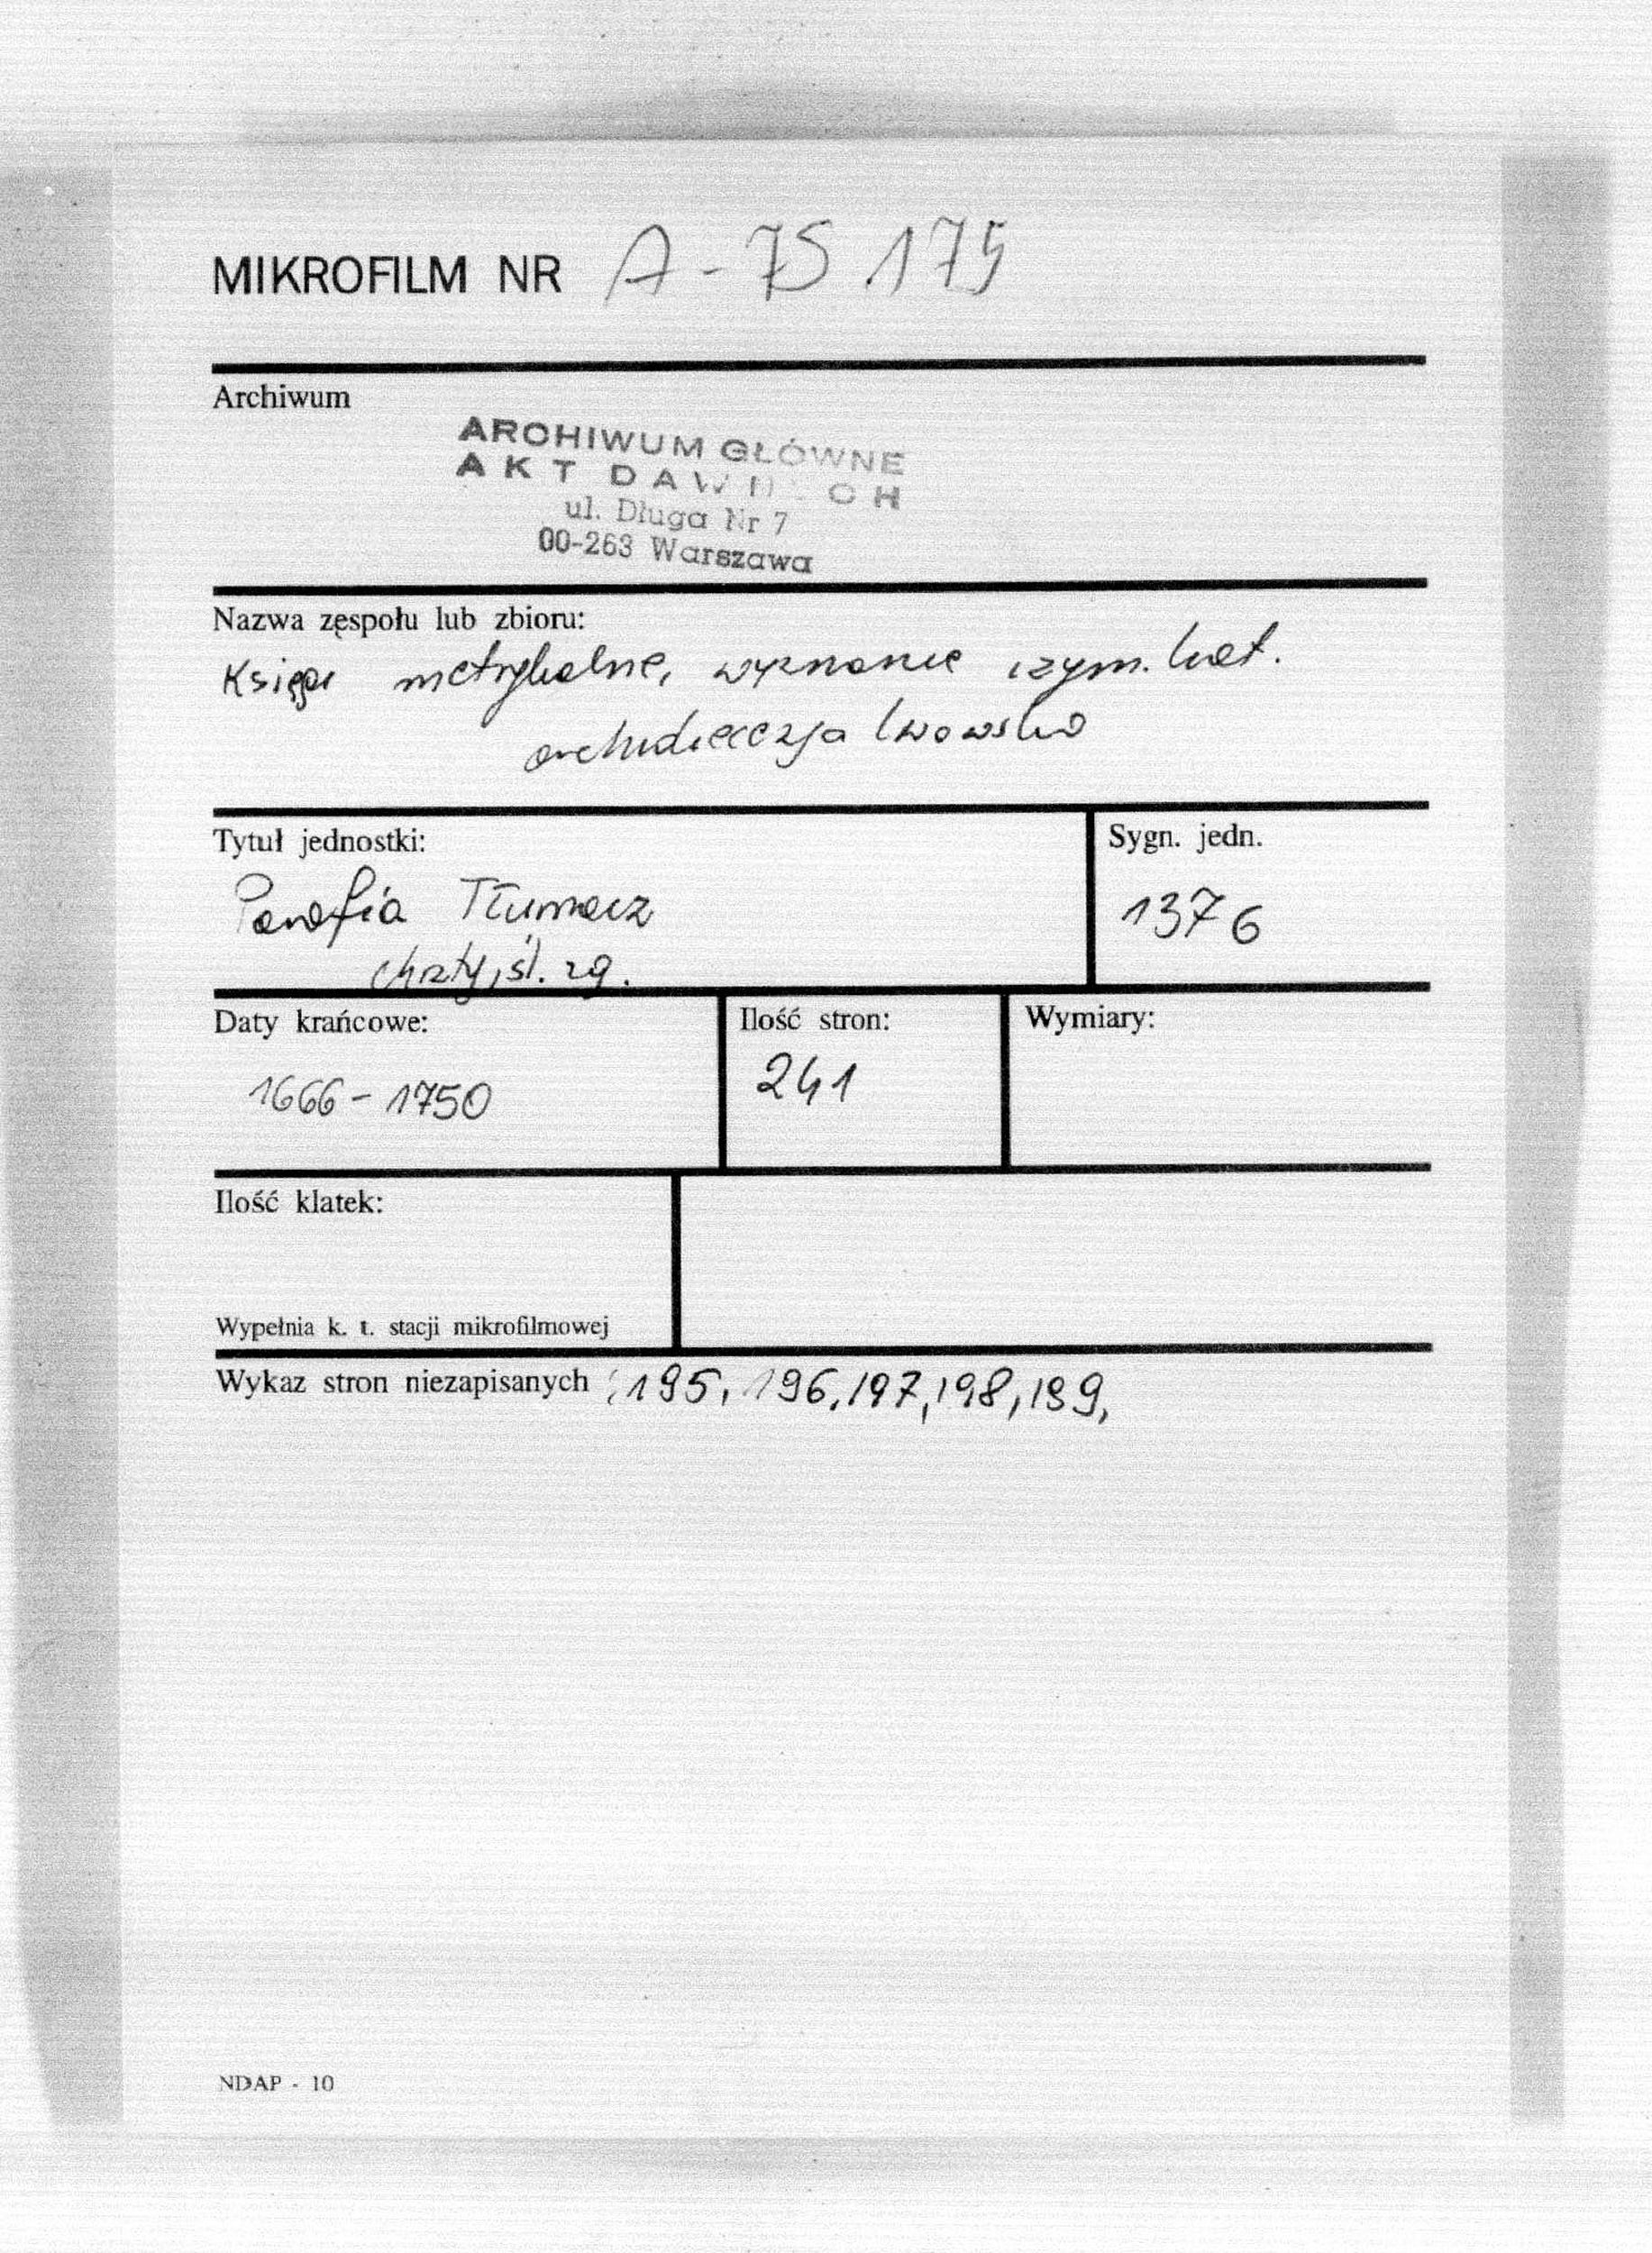 MIKROFILM NR A-75175
Archiwum
ARCHIWUM GŁÓWNE
AKT DAWNYCH
ul. Długa Nr 7
00-263 Warszawa
Nazwa zespołu lub zbioru:
Księgi metrykalne, wyznanie rzym. kat.
archidiecezja lwowska
Tytuł jednostki:
Sygn. jedn.
Parafia Tłumacz
1376
chrzty, śl. zg.
Daty krańcowe:
Ilość stron:
Wymiary:
1666-1750
241
Ilość klatek:
Wypełnia k. t. stacji mikrofilmowej
Wykaz stron niezapisanych : 195, 196, 197, 198, 199,
NDAP - 10